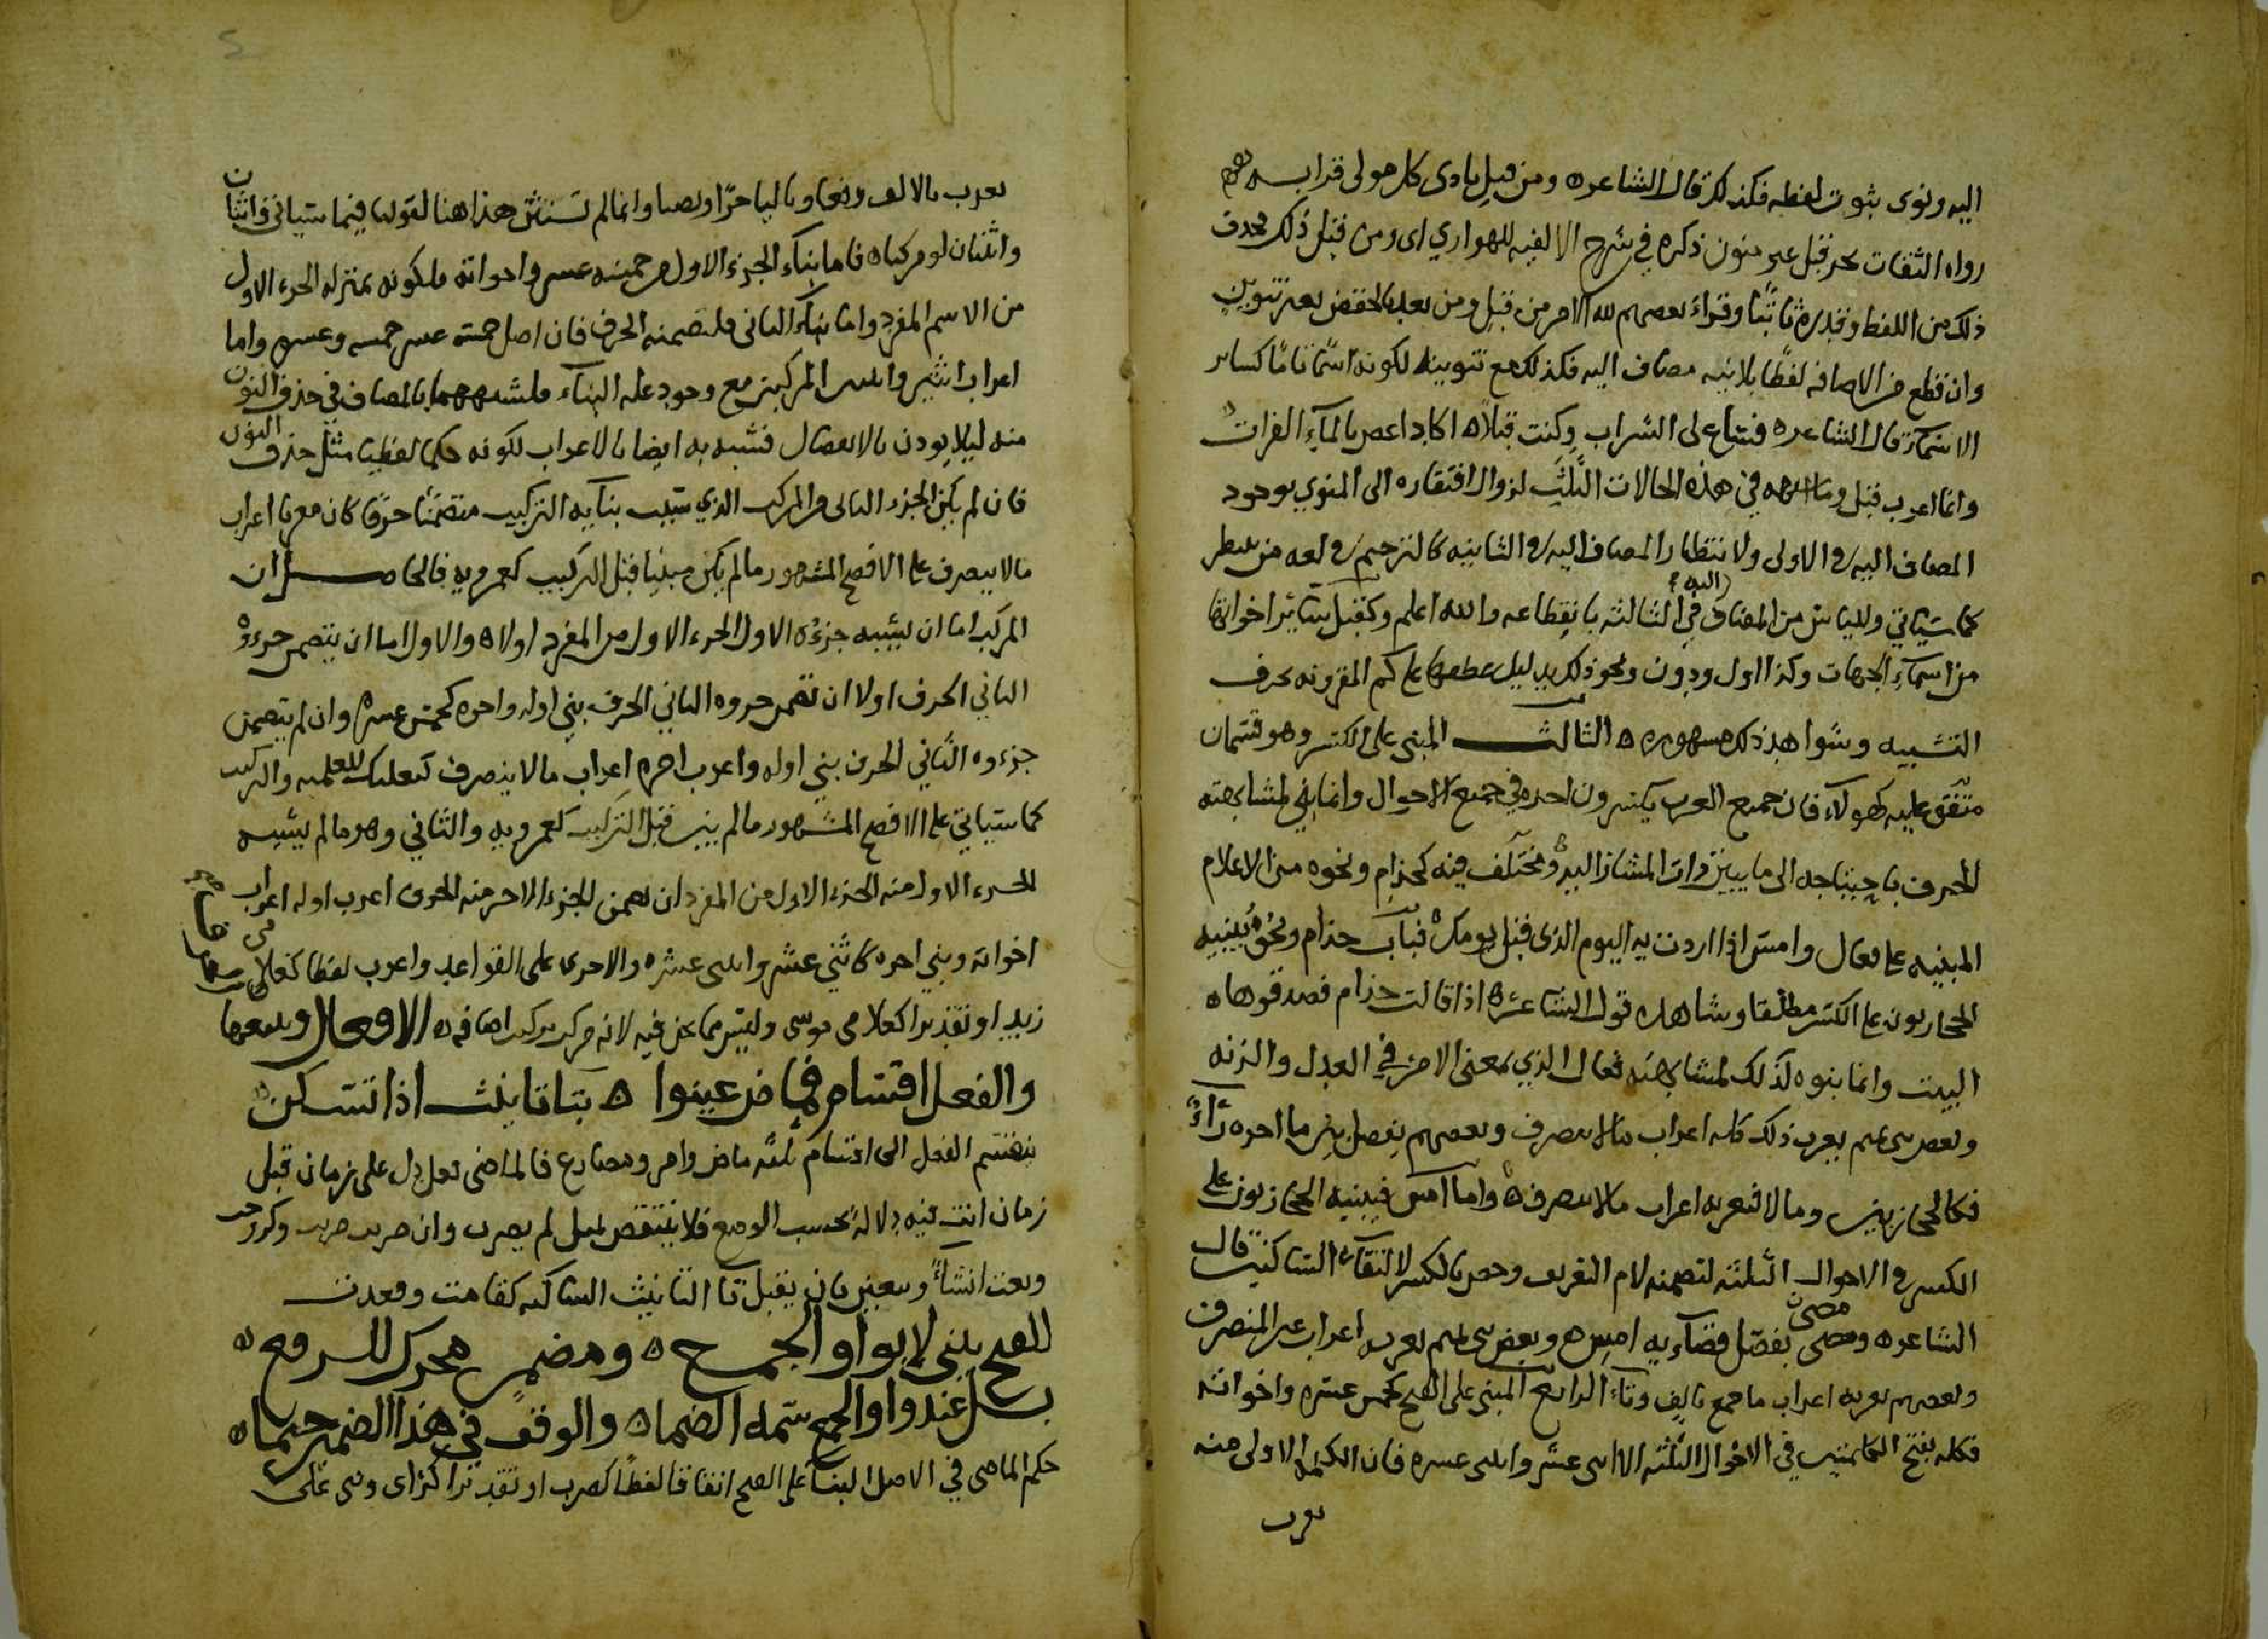 اليه ونوى ثبوت لفظه فكذلك قال الشاعر ه ومن قبل نادى كل مولى قرابه
رواه الثقات بجر قبل غير منون ذكره في شرح الالفيه للهواري اى ومن قبل ذلك فحذف
ذلك من اللفظ وقدره ثابتا وقراء بعضهم لله الامر من قبل ومن بعد بالخفض بغير تنوين
وان قطع من الاضافه لفظا بلا نيه مضاف اليه فكذلك مع تنوينه لكونه اسما تاما كساير
الاسماء قال الشاعر ه فساغ لى الشراب وكنت قبلا ه اكاد اغص بالماء الفرات
وانما اعرب قبل وما اشبهه في هذه الحالات الثلث لزوال افتقاره الى المنوي بوجود
المضاف اليه في الاولى ولانتظار المضاف اليه في الثانيه كالترخيم في لغه من ينتظر
كما سياتي ولليأس من المضاف اليه في الثالثه بانقطاعه والله اعلم وكقبل سائر اخواتها
من اسماء الجهات وكذا اول ودون ونحو ذلك بدليل عطفها على كم المقرونه بحرف
التشبيه وشواهد ذلك مشهوره ه الثالث المبنى على الكسر وهو قسمان
متفق عليه كهولاء فان جميع العرب يكسرون اخره في جميع الاحوال وانما بني لمشابهته
للحرف باحتياجه الى ما يبين ذات المشار اليه ومختلف فيه كحذام ونحوه من الاعلام
المبنيه على فعال وامس اذا اردت به اليوم الذى قبل يومك ه فباب حذام ونحوه يبنيه
الحجازيون على الكسر مطلقا وشاهده قول الشاعر ه اذا قالت حذام فصدقوها ه
البيت وانما بنوه لذلك لمشابهته فعال الذي بمعنى الامر في العدل والزنه
وبعض بنى تميم يعرب ذلك كله اعراب ما لا ينصرف وبعضهم يفصل بين ما اخره راء
فكالحجازيين وما لا فيعربه اعراب ما لا ينصرف ه واما امس فيبنيه الحجازيون على
الكسر في الاحوال الثلثه لتضمنه لام التعريف وخص بالكسر لالتقاء الساكنين قال
الشاعر ه ومضى بفصل قضائه امس ه وبعض بنى تميم يعربه اعراب غير المنصرف
وبعضهم يعربه اعراب ما جمع بالف وتاء الرابع المبنى على الفتح كخمس عشره واخواته
فكله بفتح الكلمتين في الاحوال الثلثه الا اثنى عشر واثنتى عشره فان الكلمه الاولى منه
يعرب
يعرب بالالف رفعا وباليا جرا ونصبا وانما لم نستثن هذا هنا لقولنا فيما سياتي واثنان
واثنتان لو مركبا ه فاما بناء الجزء الاول من خمسه عشر واخواته فلكونه بمنزله الجزء الاول
من الاسم المفرد واما بناء الثاني فلتضمنه الحرف فان اصل خمسه عشر خمسه وعشره واما
اعراب اثنين واثنتين المركبين مع وجود عله البناء فلشبههما بالمضاف في حذف النون
منه ليلا يوذن بالانفصال فشبه به ايضا بالاعراب لكونه حكما لفظيا مثل حذف النون
فان لم يكن الجزء الثاني من المركب الذي سبب بنائه التركيب متضمنا حرفا كان معربا اعراب
ما لا ينصرف على الافصح المشهور ما لم يكن مبنيا قبل التركيب كعمرويه فالحاصل ان
المركب اما ان يشبه جزءه الاول الجزء الاول من المفرد اولا ه والاول اما ان يتضمن جزءه
الثاني الحرف اولا ان تضمن جزوه الثاني الحرف بني اوله واخره كخمس عشره وان لم يتضمن
جزءه الثاني الحرف بني اوله واعرب اخره اعراب ما لا ينصرف كبعلبك للعلميه والتركيب
كما سياتي على الافصح المشهور ما لم يبن قبل التركيب كعمرويه والثاني وهو ما لم يشبه
الجزء الاول منه الجزء الاول من المفرد ان تضمن الجزء الاخر منه الحرف اعرب اوله اعراب
اخواته وبني اخره كاثني عشر واثنتى عشره والاجرى على القواعد واعرب لفظا كغلامى
زيد او تقديرا كغلامى موسى وليس مما نحن فيه لانه مركب تركيب اضافه ه الافعال
والفعل اقسام فماض عينوا ه بتا تانيث اذا تسكن
ينقسم الفعل الى اقسام ثلثه ماض وامر ومضارع فالماضى فعل دل على زمان قبل
زمان انت فيه دلاله بحسب الوضع فلا ينتقض بمثل لم يضرب وان ضربت ضربت
وبعت انشاء ويتعين بان يقبل تا التانيث الساكنه كقامت وقعدت
للفتح يبنى لا بواو الجمع ه ومضمر محرك للرفع ه
بل عند واو الجمع سمه الضما ه والوقف في هذا الضمير حتما ه
حكم الماضى في الاصل البناء على الفتح اتفاقا لفظا كضرب او تقديرا كراى وبنى على